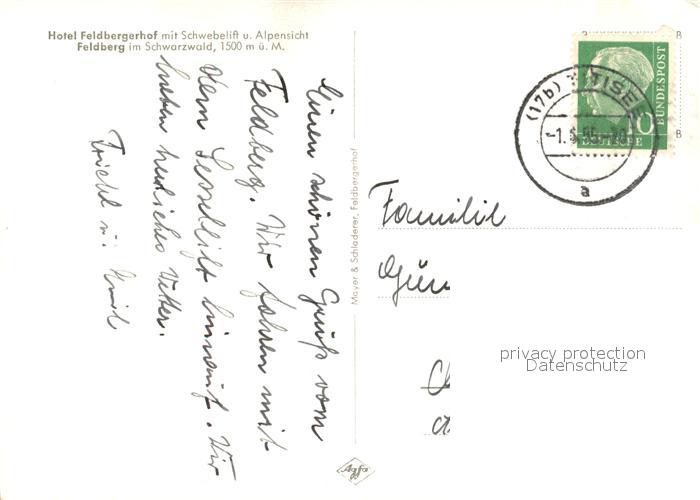 Hotel Feldbergerhof mit Schwebelift u. Alpensicht
Feldberg im Schwarzwald, 1500 m ü. M.
Einen schönen Gruß vom
Feldberg. Wir fahren mit
dem Sessellift hinauf. Wir
haben herrliches Wetter.
Friedl u. Emil
Mayer & Schladerer, Feldbergerhof
Agfa
(17b) TITISEE
-1.6.55.-20
a
DEUTSCHE
BUNDESPOST
10
B
B
B
Familie
Gün
privacy protection
Datenschutz